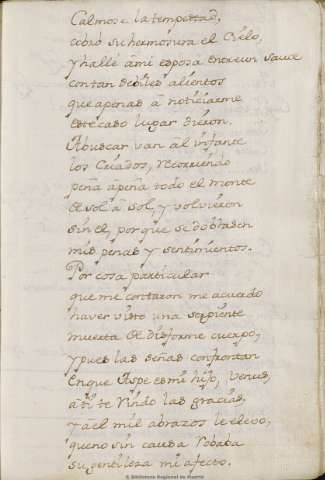 Calmose la tempestad,
cobró su hermosura el Cielo,
y hallé â mi esposa en un sauce
con tan debiles alientos
que apenas â noticiarme
este caso lugar dieron.
A buscar van âl infante
los Criados, recorriendo
peña â peña todo el monte
de sol â sol, y volvieron
sin el, porque se doblasen
mis penas y sentimientos.
Por cosa particular
que me contaron me acuerdo
haver visto una serpiente
muerta de disforme cuerpo,
y pues las señas confrontan
en que Aspe es mi hijo, Venus,
a ti te rindo las gracias,
y a el mil abrazos le devo,
que no sin causa robaba
su gentileza mi afecto.
© Biblioteca Regional de Madrid